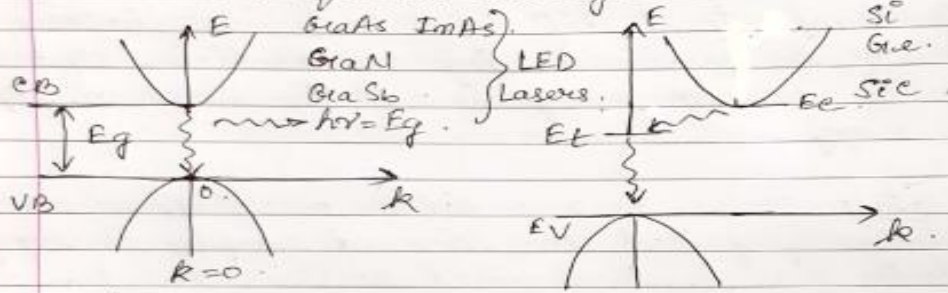 E GaAs InAs
GaN
GaSb
LED
Lasers.
CB
Eg
hν = Eg.
VB
0.
k
k=0.
E
Si
Ge.
SiC
Ec
Et
EV
k.